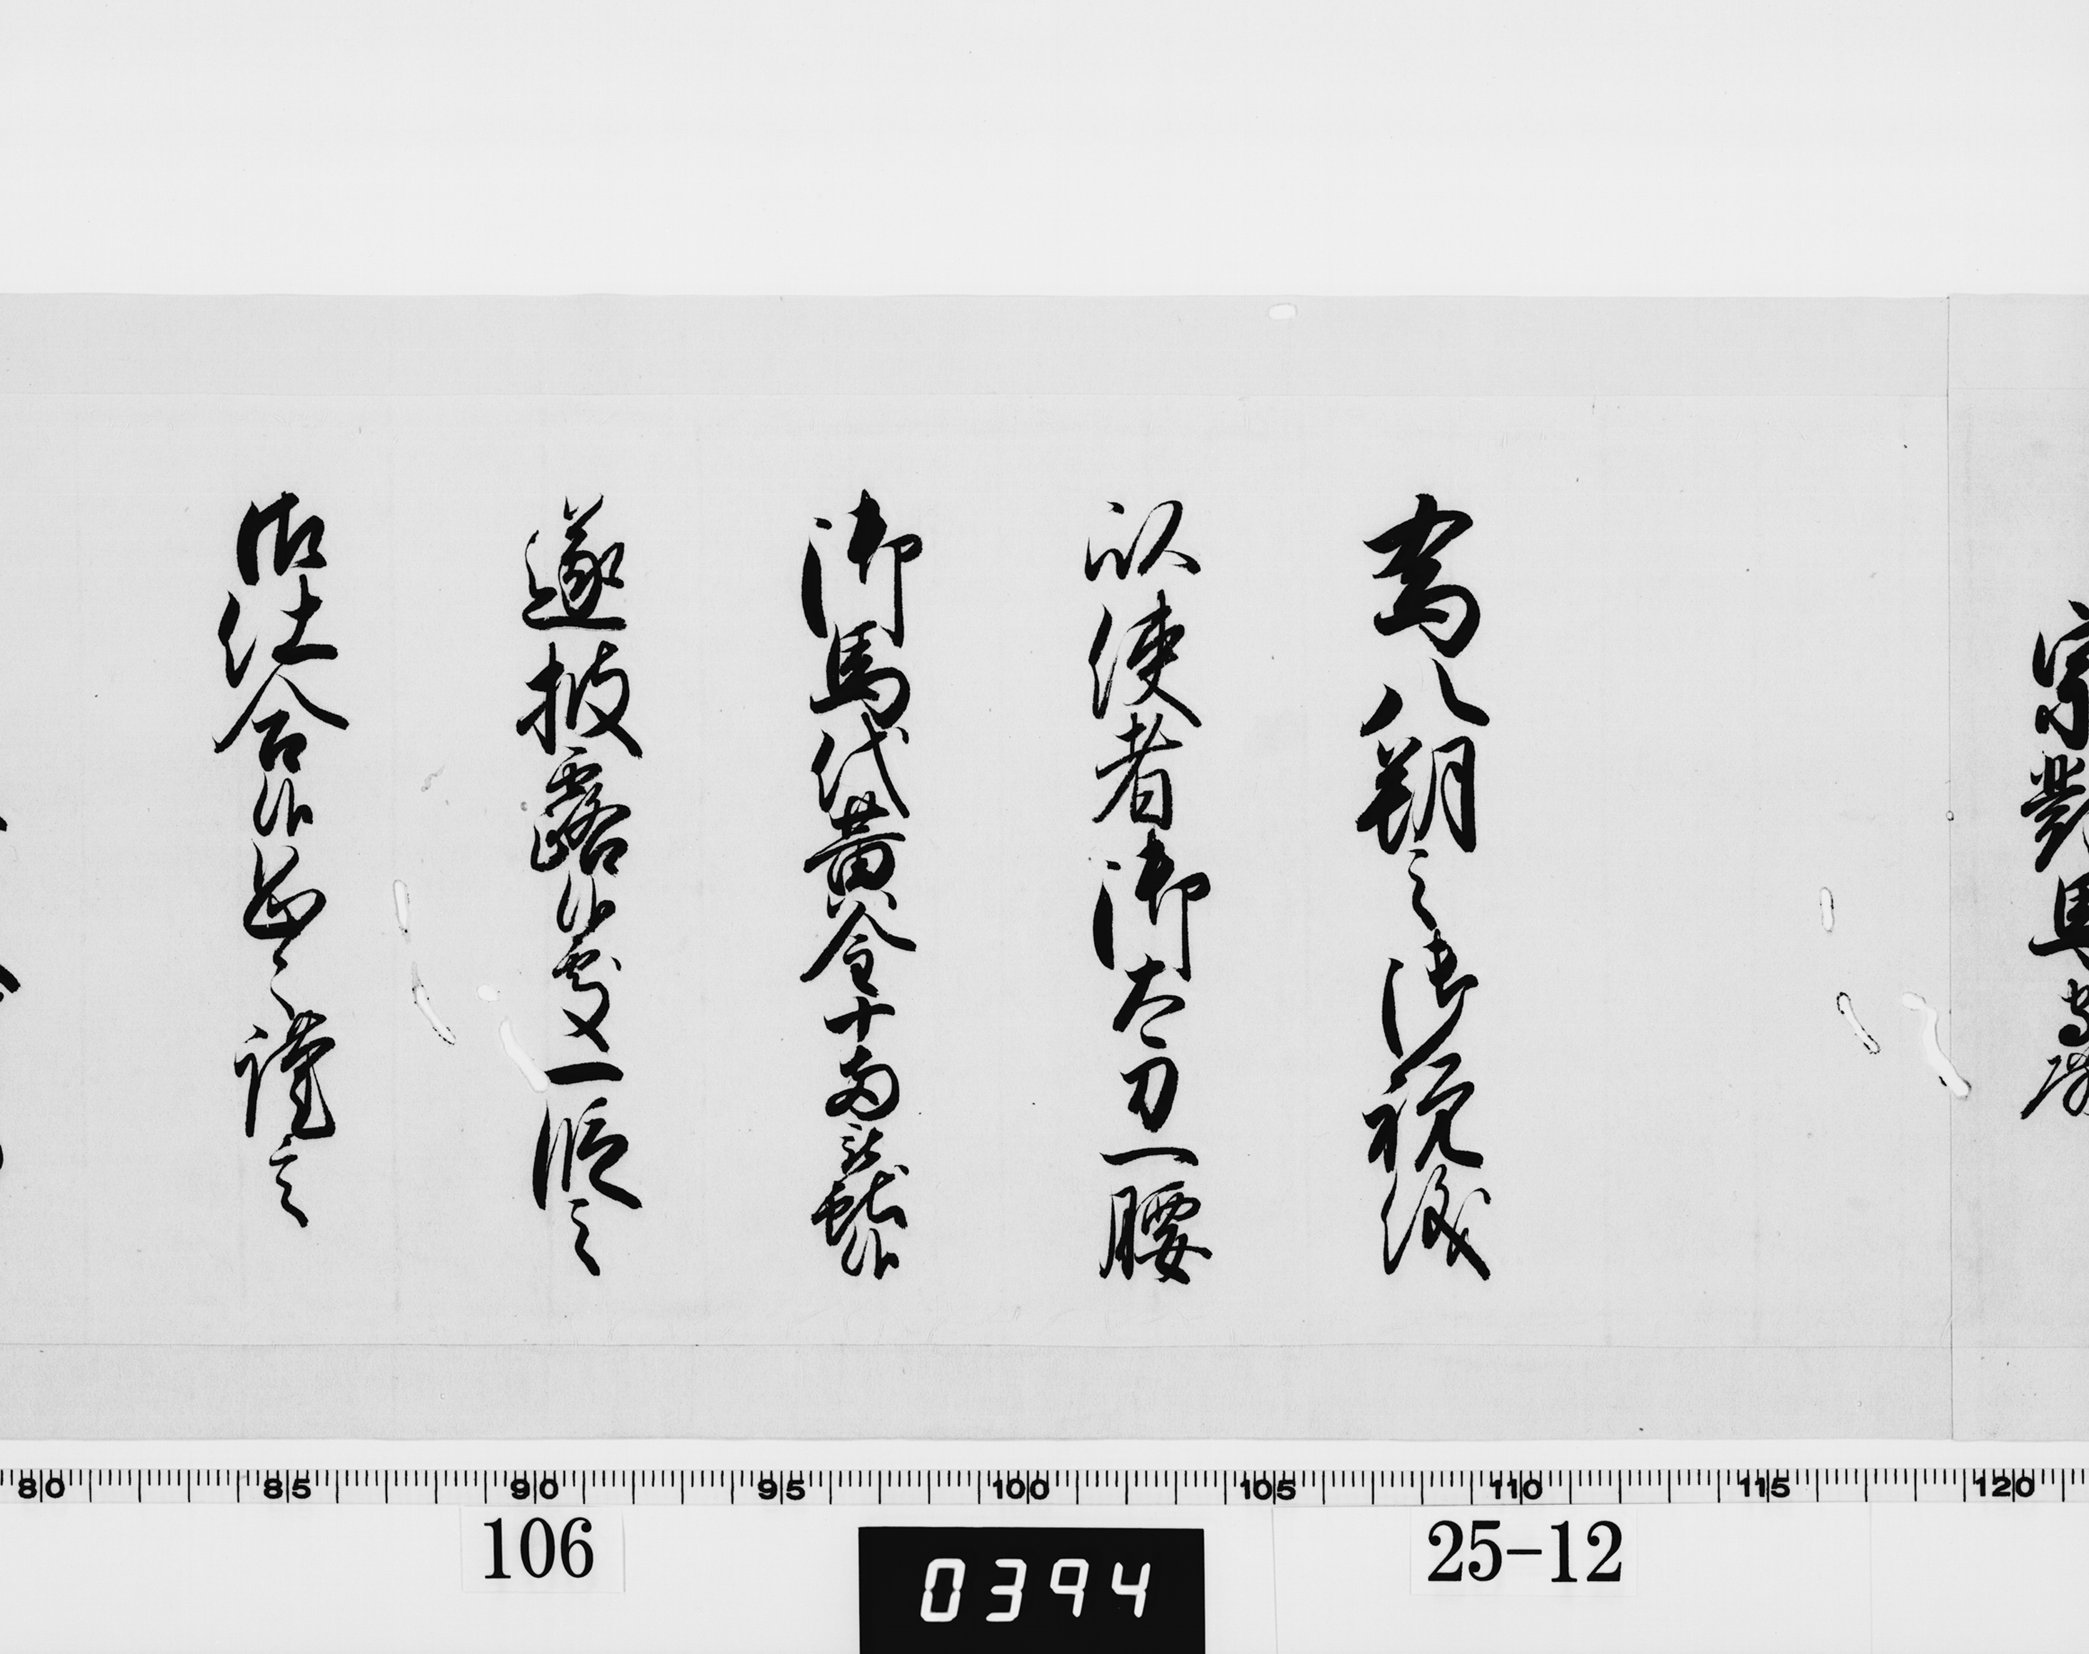 宗對馬守
為八朔之御祝儀
以使者御太刀一腰
御馬代黄金十両被献候
遂披露候處一段之
御仕合候恐々謹言
80 85 90 95 100 105 110 115 120
106
0394
25-12